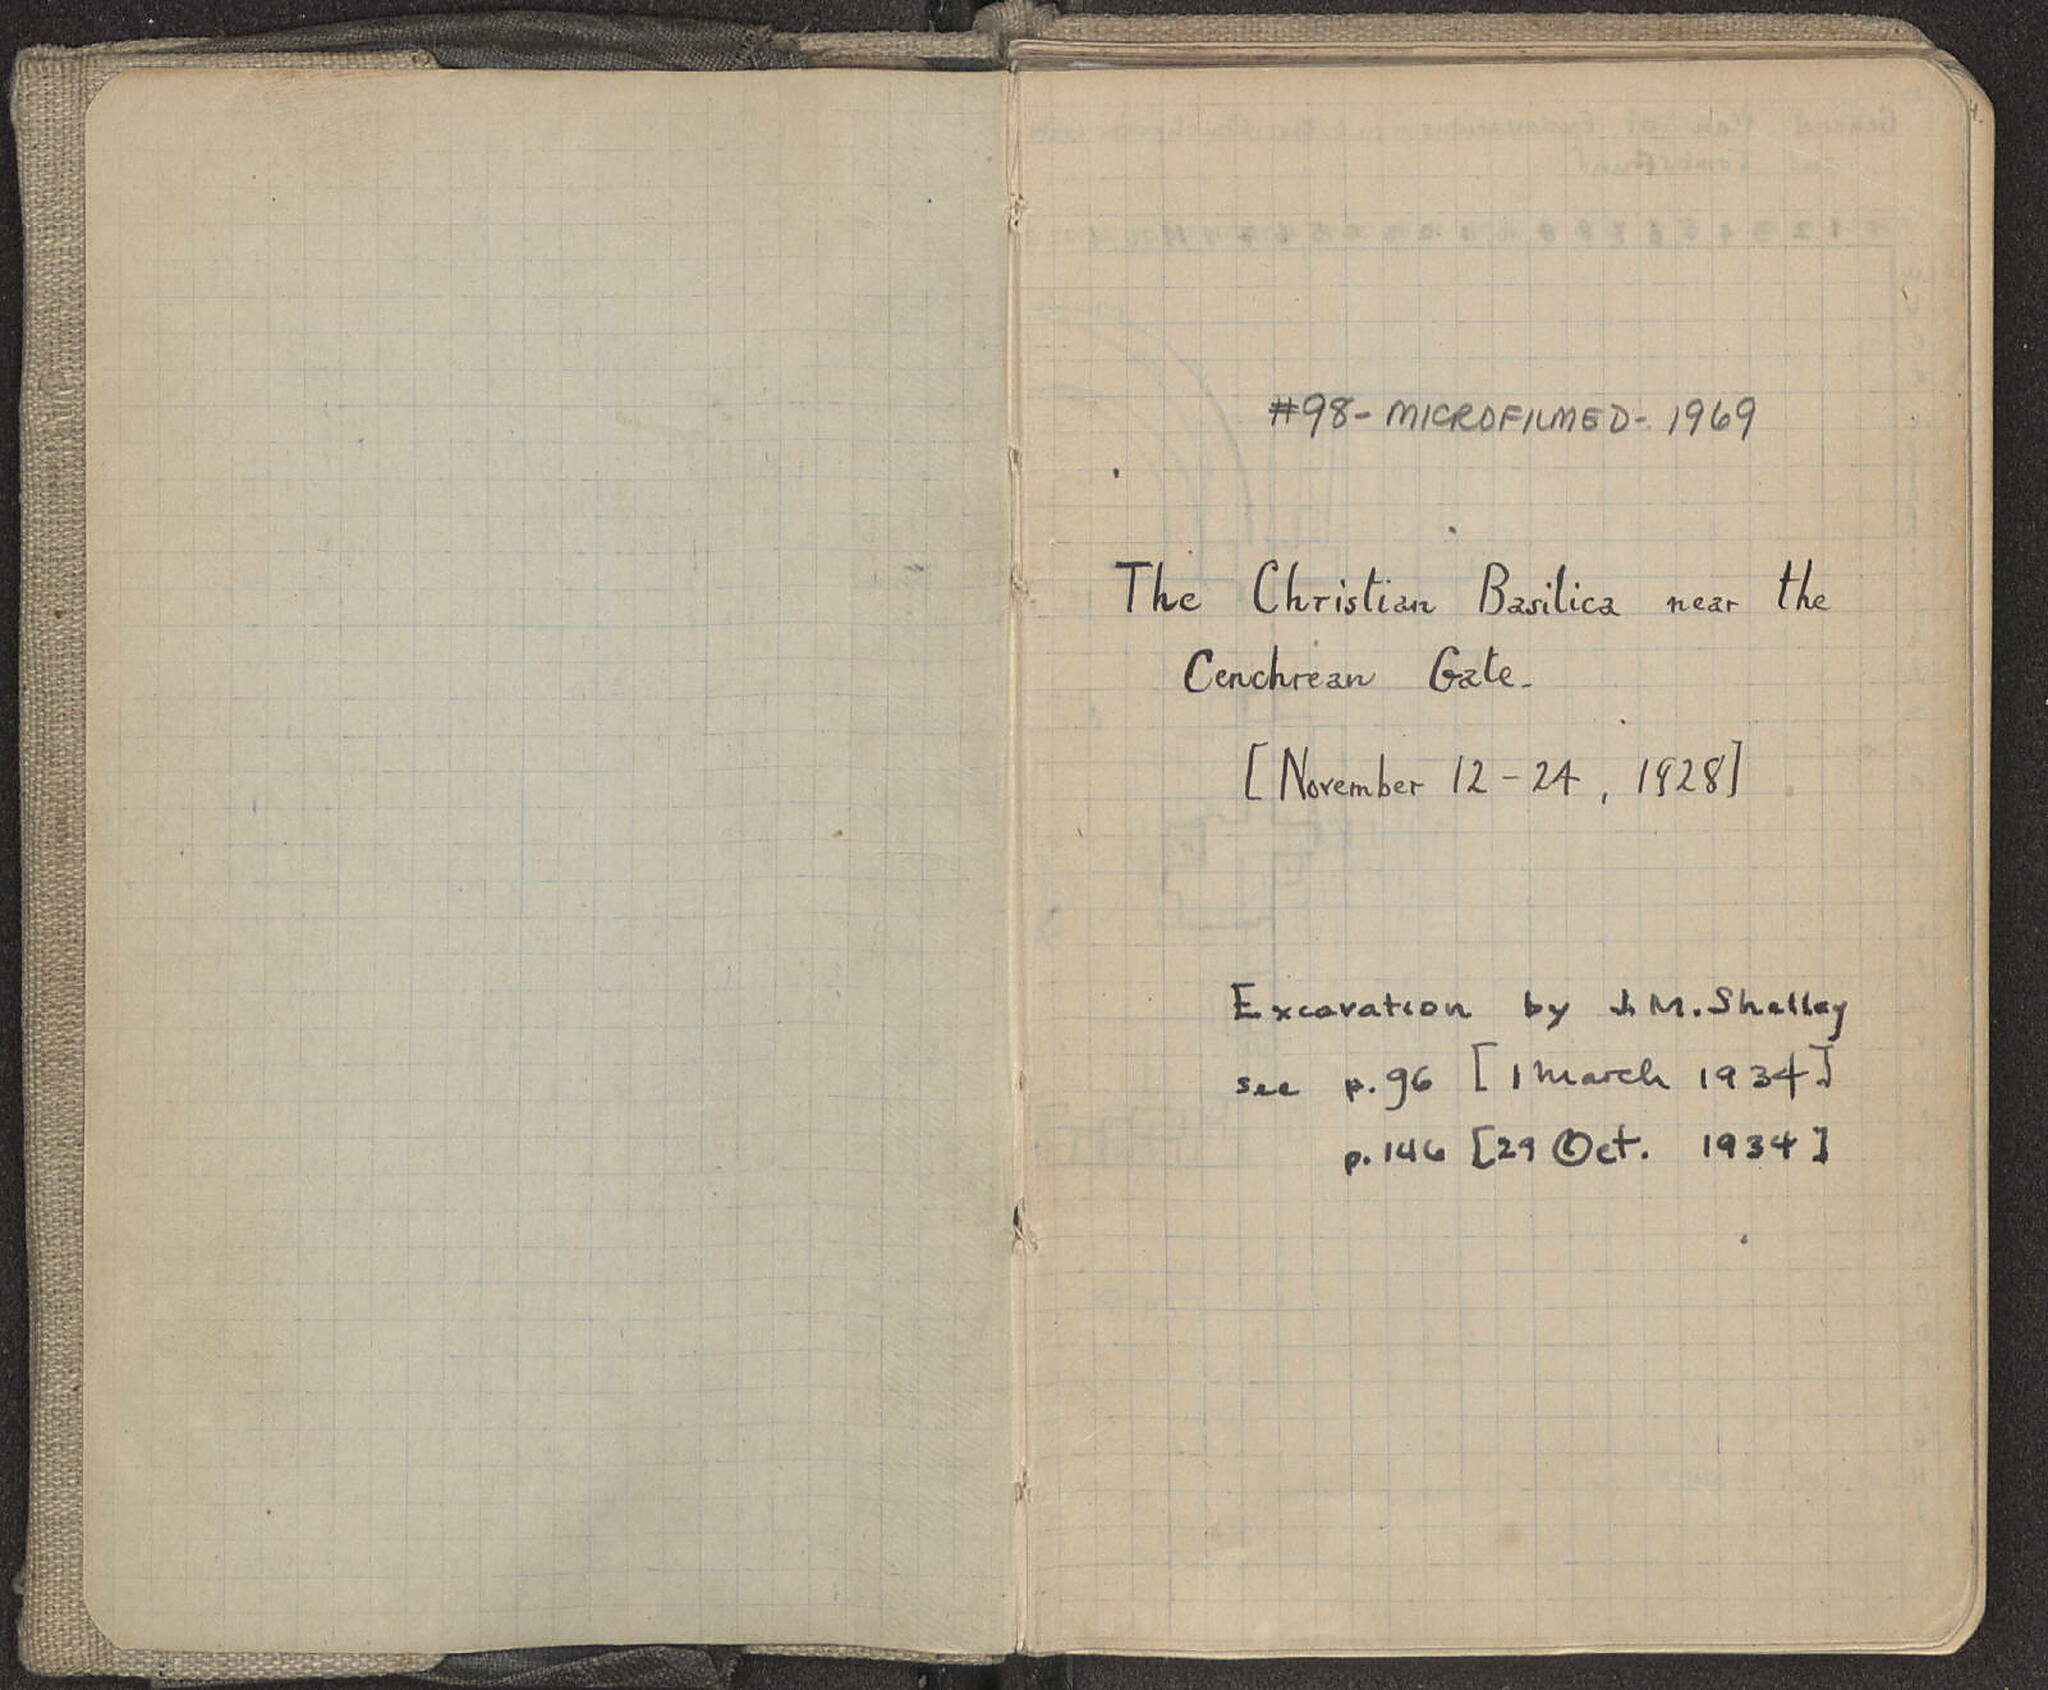 #98- MICROFILMED- 1969
The Christian Basilica near the
Cenchrean Gate.
[November 12-24, 1928]
Excavation by J.M. Shelley
see p.96 [1 March 1934]
p.146 [29 Oct. 1934]